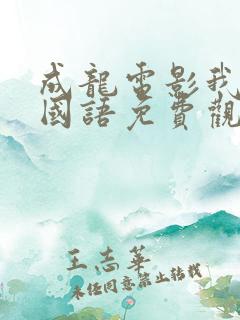 成龍電影我
國語免費觀
王志華
未經同意禁止轉載